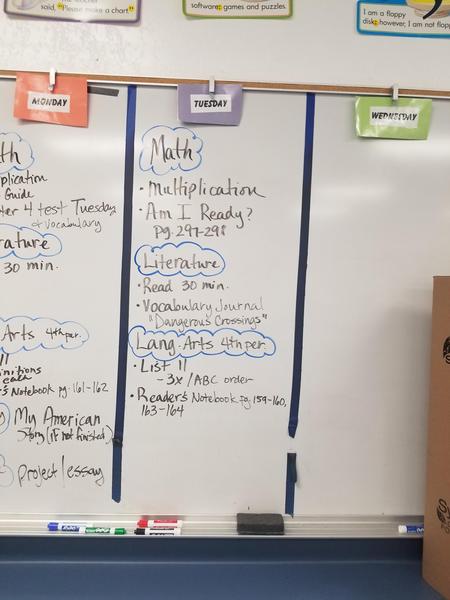 said, "Please make a chart."
software; games and puzzles.
I am a floppy
disk; however, I am not flopp
MONDAY
th
plication
Guide
ter 4 test Tuesday
+ vocabulary
rature
30 min.
Arts 4th per.
11
initions
each
s Notebook pg. 161-162
My American
Story (if not finished)
project/essay
TUESDAY
Math
• Multiplication
• Am I Ready?
pg. 297-298
Literature
• Read 30 min.
• Vocabulary Journal
"Dangerous Crossings"
Lang. Arts 4th per
• List 11
- 3x / ABC order
• Reader's Notebook pg. 159-160,
163-164
WEDNESDAY